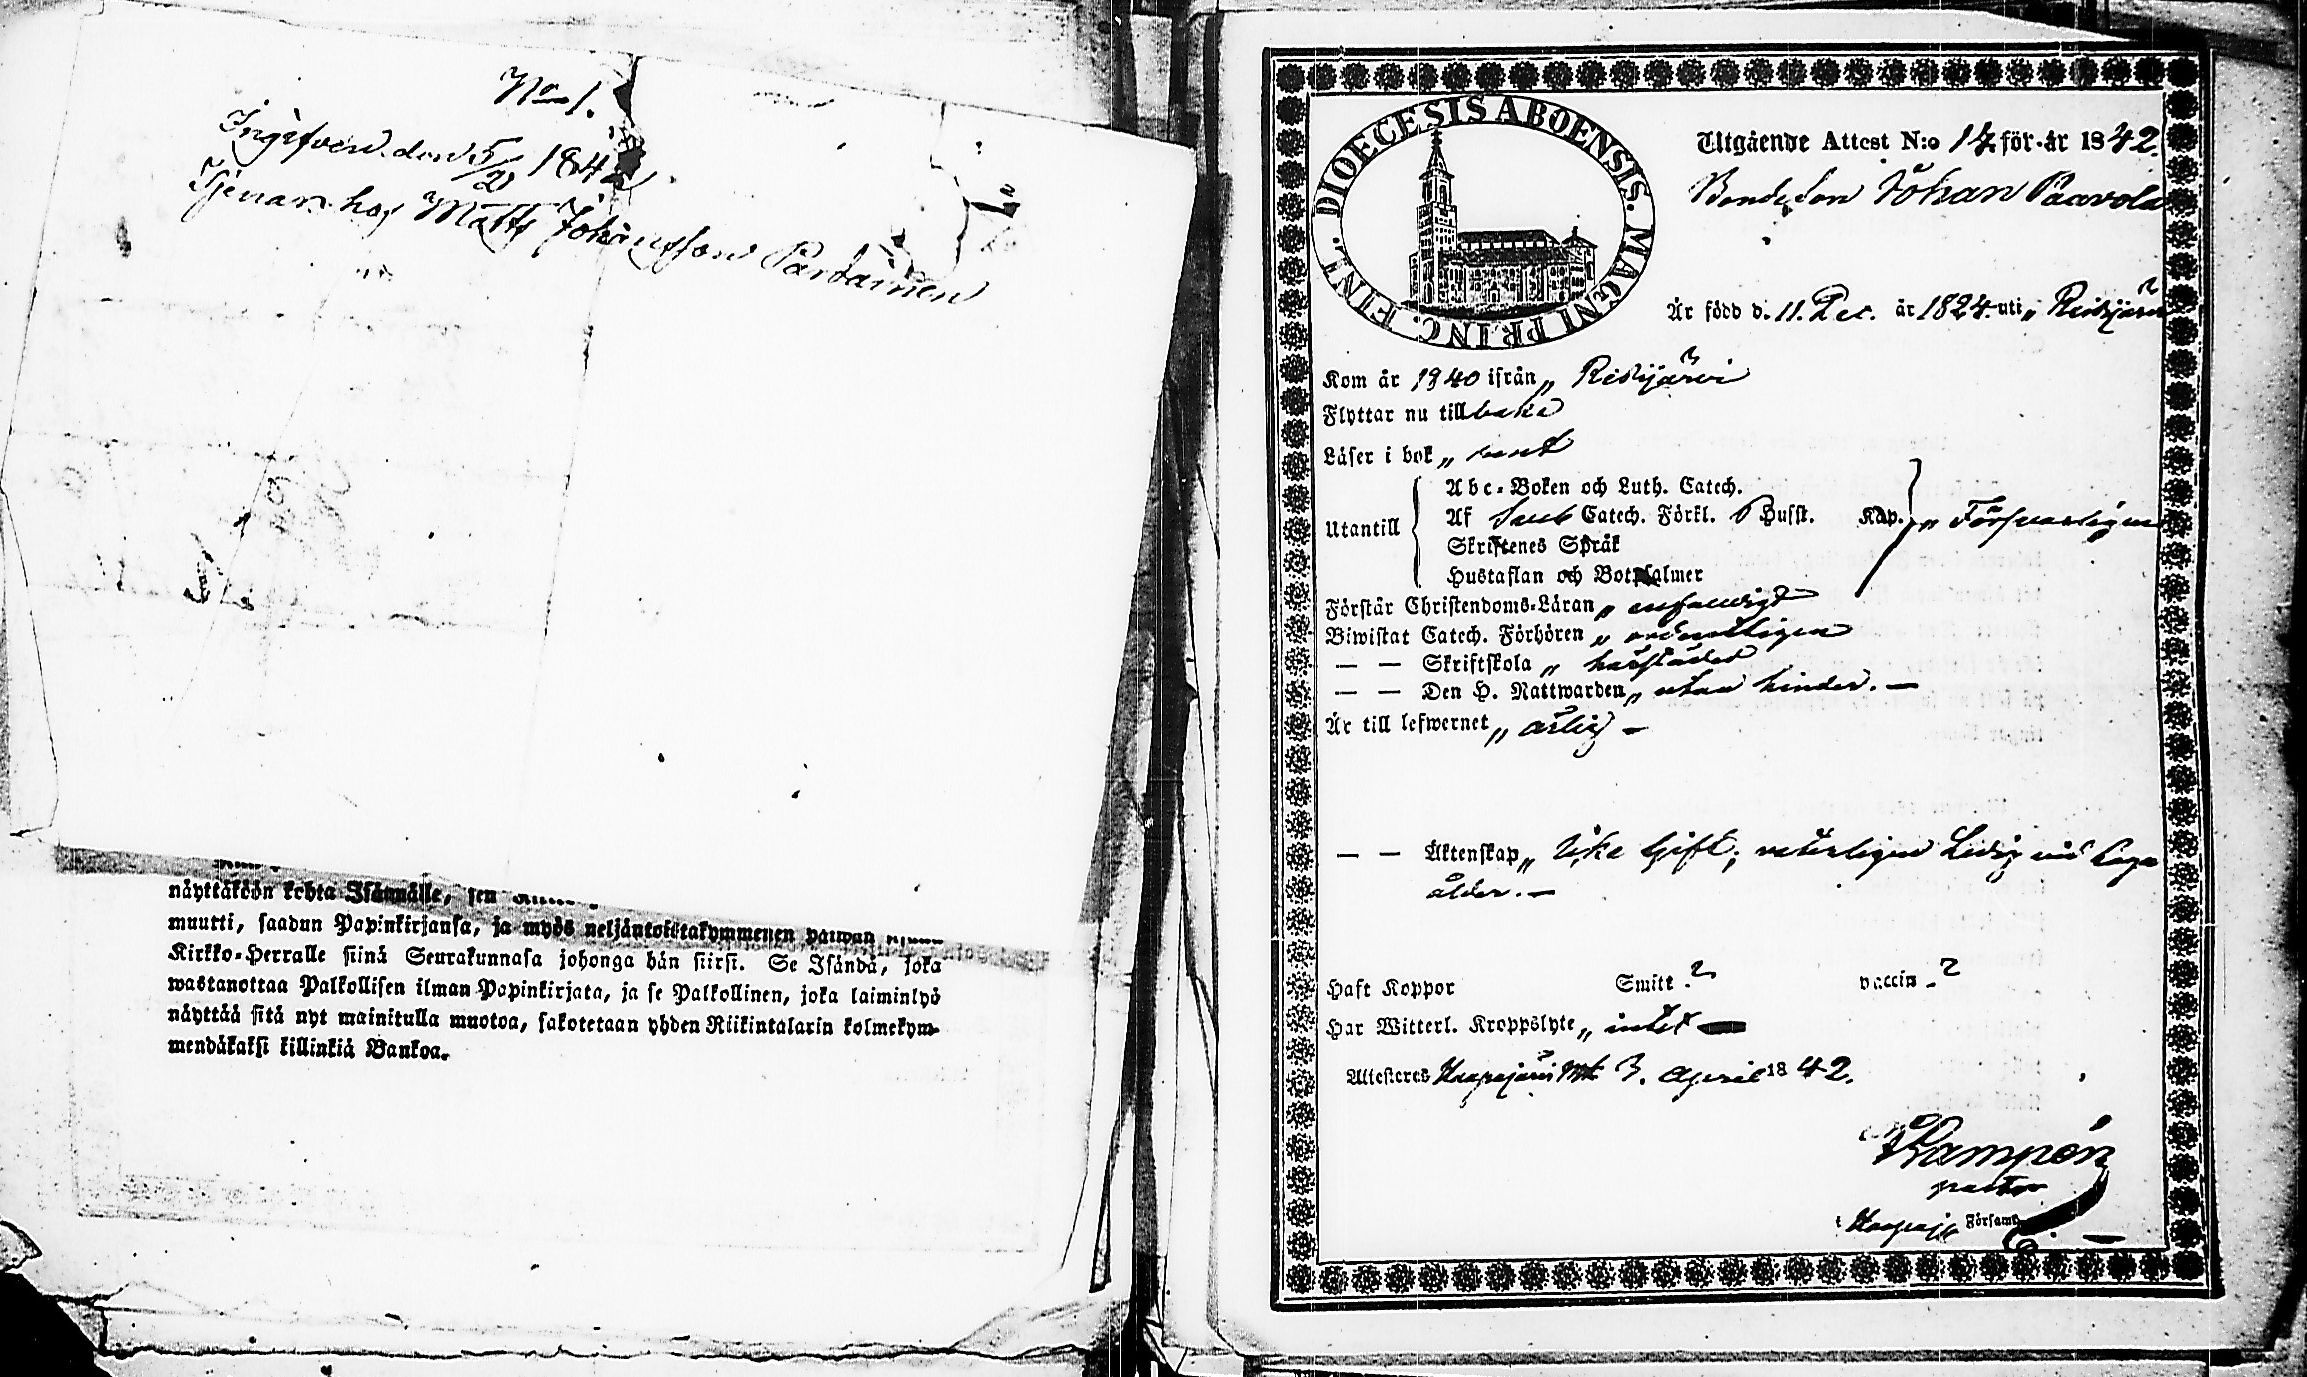 No 1.
Ingifven den 5/21 1842.
Tjenar hos Matts Johansson Partainen
näyttäköön kohta Isännälle, sen
muutti, saadun Papinkirjansa, ja myös neljäntoistakymmenen päiwän
Kirkko-Herralle siinä Seurakunnasa johonga hän siirsi. Se Isändä, joka
wastanottaa Palkollisen ilman Papinkirjata, ja se Palkollinen, joka laiminlyö
näyttää sitä nyt mainitulla muotoa, sakotetaan yhden Riikintalarin kolmekym-
mendäkaksi killinkiä Bankoa.
DIOECESIS ABOENSIS. MAGNI PRINC. FINL.
Utgående Attest N:o 14 för år 1842.
Bondeson Johan Paavola
Är född d. 11. Dec. år 1824 uti „ Reisjärvi
Kom år 1840 ifrån „ Reisijärvi
Flyttar nu tillbaka
Läser i bok „ rent
Utantill
Abc-Boken och Luth. Catech.
Af Sveb Catech. Förkl. Husst. Kap. „ Försvarligen
Skriftenes Språk
Hustaflan och Botpsalmer
Förstår Christendoms-Läran „ enfaldigt
Biwistat Catech. Förhören „ ordentligen
— — Skriftskola „ härstädes
— — Den H. Nattwarden „ utan hinder. —
Är till lefwernet „ ärlig —
— — Äktenskap „ Icke Gift; veterligen Ledig vid laga
ålder. —
Haft Koppor Smitt. ? vaccin - ?
Har Witterl. Kroppslyte „ intet —
Attesteres Haapajärvi 3. April 1842.
Kampén
pastor
i Haapaj. Församl.